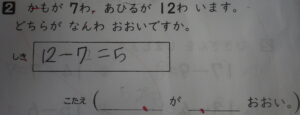 2 かもが 7わ、あひるが 12わ います。
どちらが なんわ おおいですか。
しき 12-7=5
こたえ ( が おおい。)